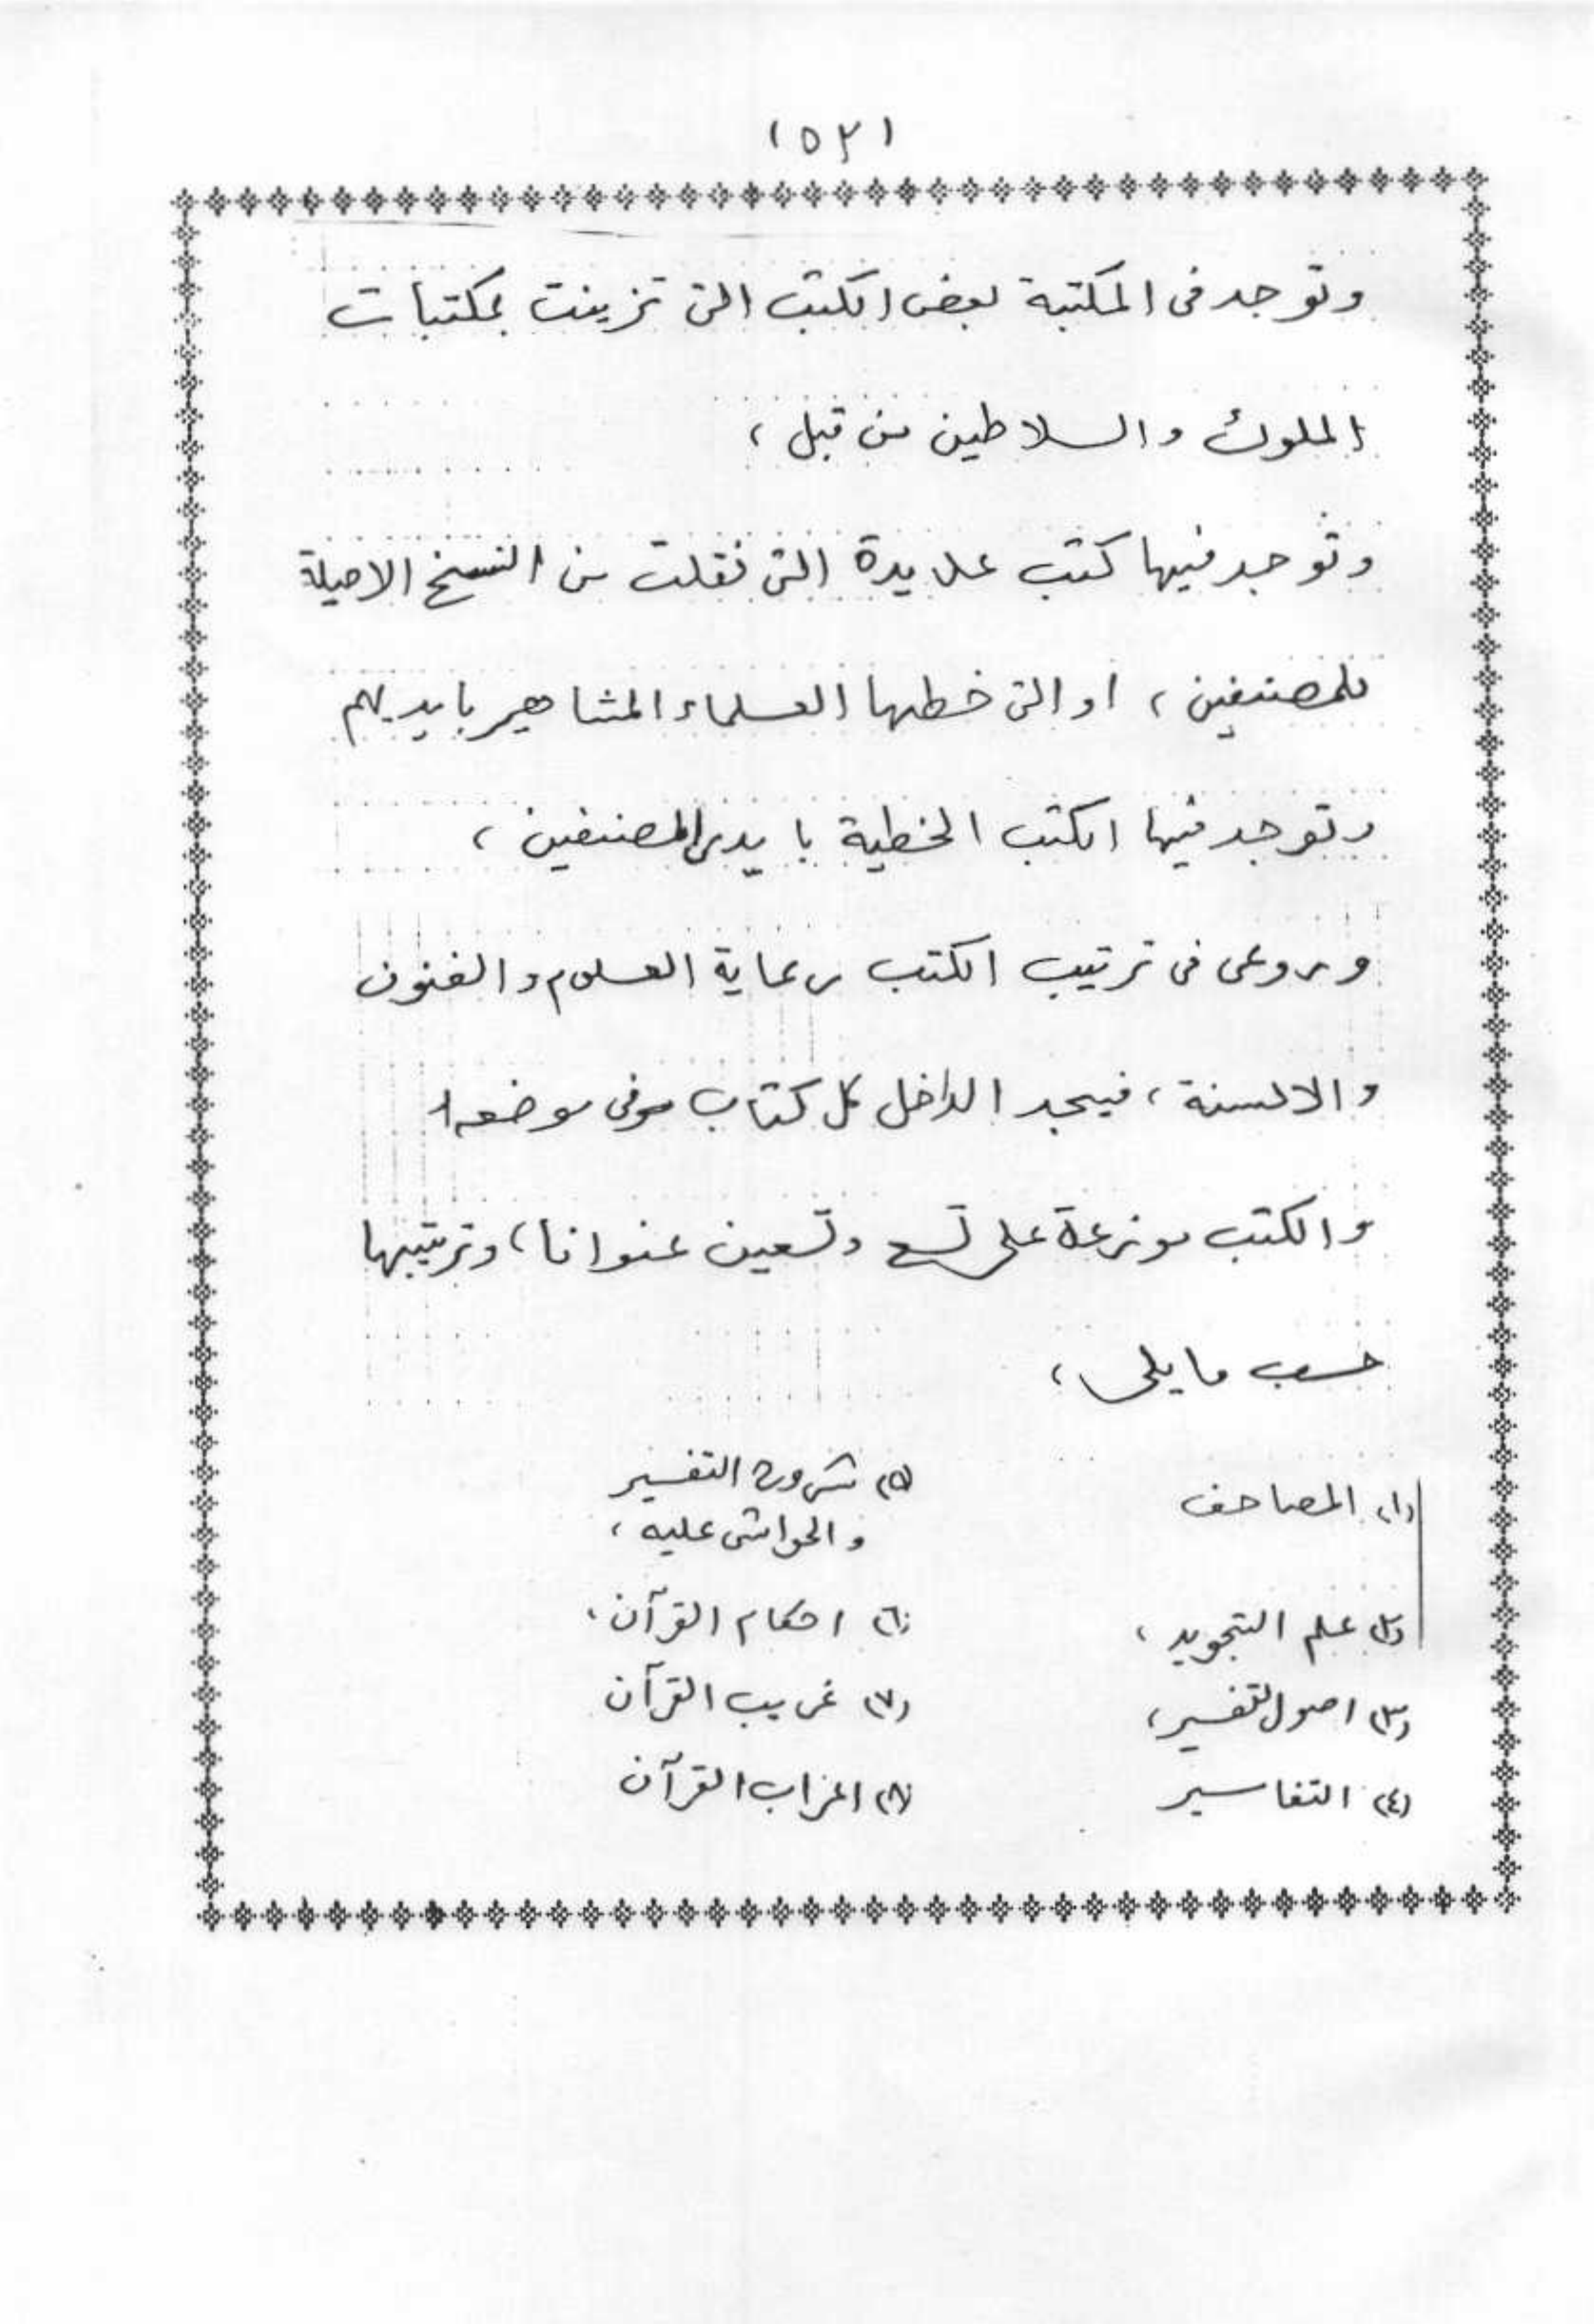 (٥٢)
وتوجد فى المكتبة بعض الكتب التى تزينت بمكتبات
الملوك والسلاطين من قبل ،
وتوجد فيها كتب عديدة التى نقلت من النسخ الاصيلة
للمصنفين ، او التى خطها العلماء المشاهير بايديهم
وتوجد فيها الكتب الخطية بايدى المصنفين ،
وروعى فى ترتيب الكتب رعاية العلوم والفنون
والالسنة ، فيجد الداخل كل كتاب فى موضعه
والكتب موزعة على تسع وتسعين عنوانا ، وترتيبها
حسب مايلى ،
(١) المصاحف
(٢) علم التجويد ،
(٣) اصول التفسير ،
(٤) التفاسير
(٥) شروح التفسير
والحواشى عليه ،
(٦) احكام القرآن ،
(٧) غريب القرآن
(٨) اعراب القرآن